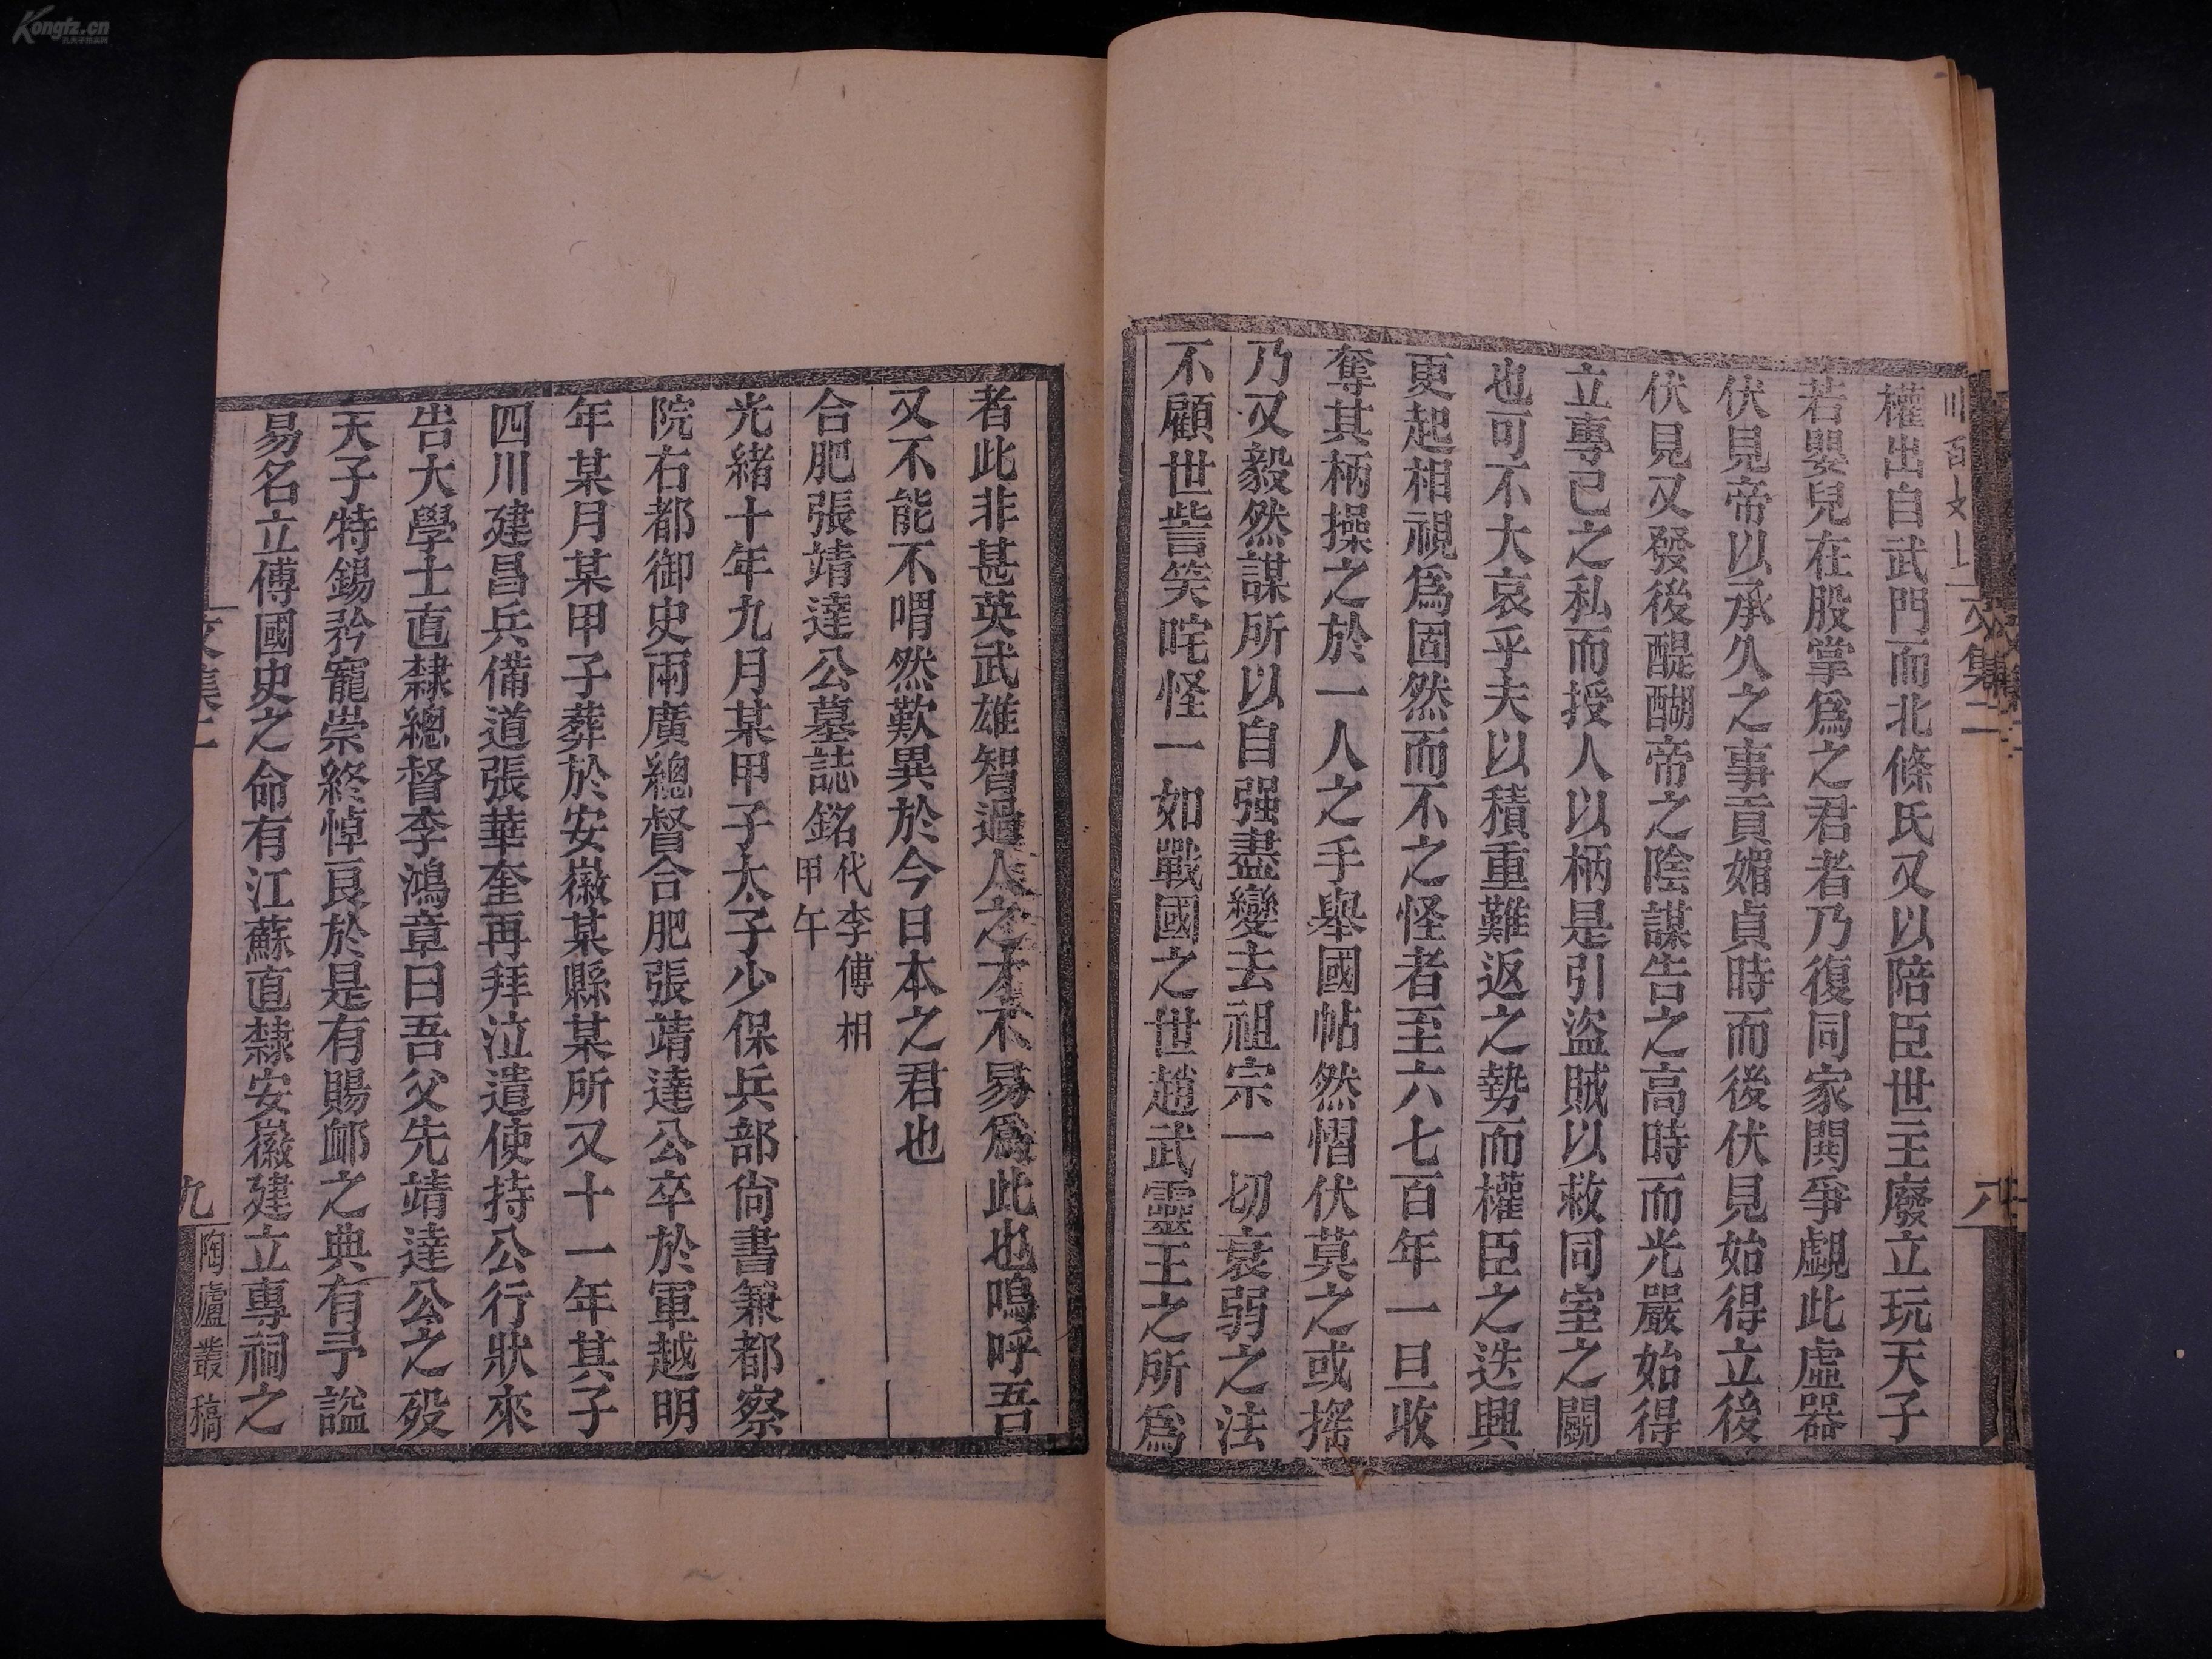 Kongfz.cn
文集二
八
權出自武門而北條氏又以陪臣世主廢立玩天子
若嬰兒在股掌爲之君者乃復同家鬩爭覷此虛器
伏見帝以承久之事貢媚貞時而後伏見始得立後
伏見又發後醍醐帝之陰謀告之高時而光嚴始得
立專己之私而授人以柄是引盜賊以救同室之鬬
也可不大哀乎夫以積重難返之勢而權臣之迭興
更起相視爲固然而不之怪者至六七百年一旦收
奪其柄操之於一人之手舉國帖然慴伏莫之或搖
乃又毅然謀所以自强盡變去祖宗一切衰弱之法
不顧世訾笑咤怪一如戰國之世趙武靈王之所爲
者此非甚英武雄智過人之才不易爲此也嗚呼吾
又不能不喟然歎異於今日本之君也
合肥張靖達公墓誌銘 代李傅相 甲午
光緒十年九月某甲子太子少保兵部尙書兼都察
院右都御史兩廣總督合肥張靖達公卒於軍越明
年某月某甲子葬於安徽某縣某所又十一年其子
四川建昌兵備道張華奎再拜泣遣使持公行狀來
告大學士直隸總督李鴻章曰吾父先靖達公之歿
天子特錫矜寵崇終悼良於是有賜卹之典有予謚
易名立傳國史之命有江蘇直隸安徽建立專祠之
文集二
九
陶廬叢稿